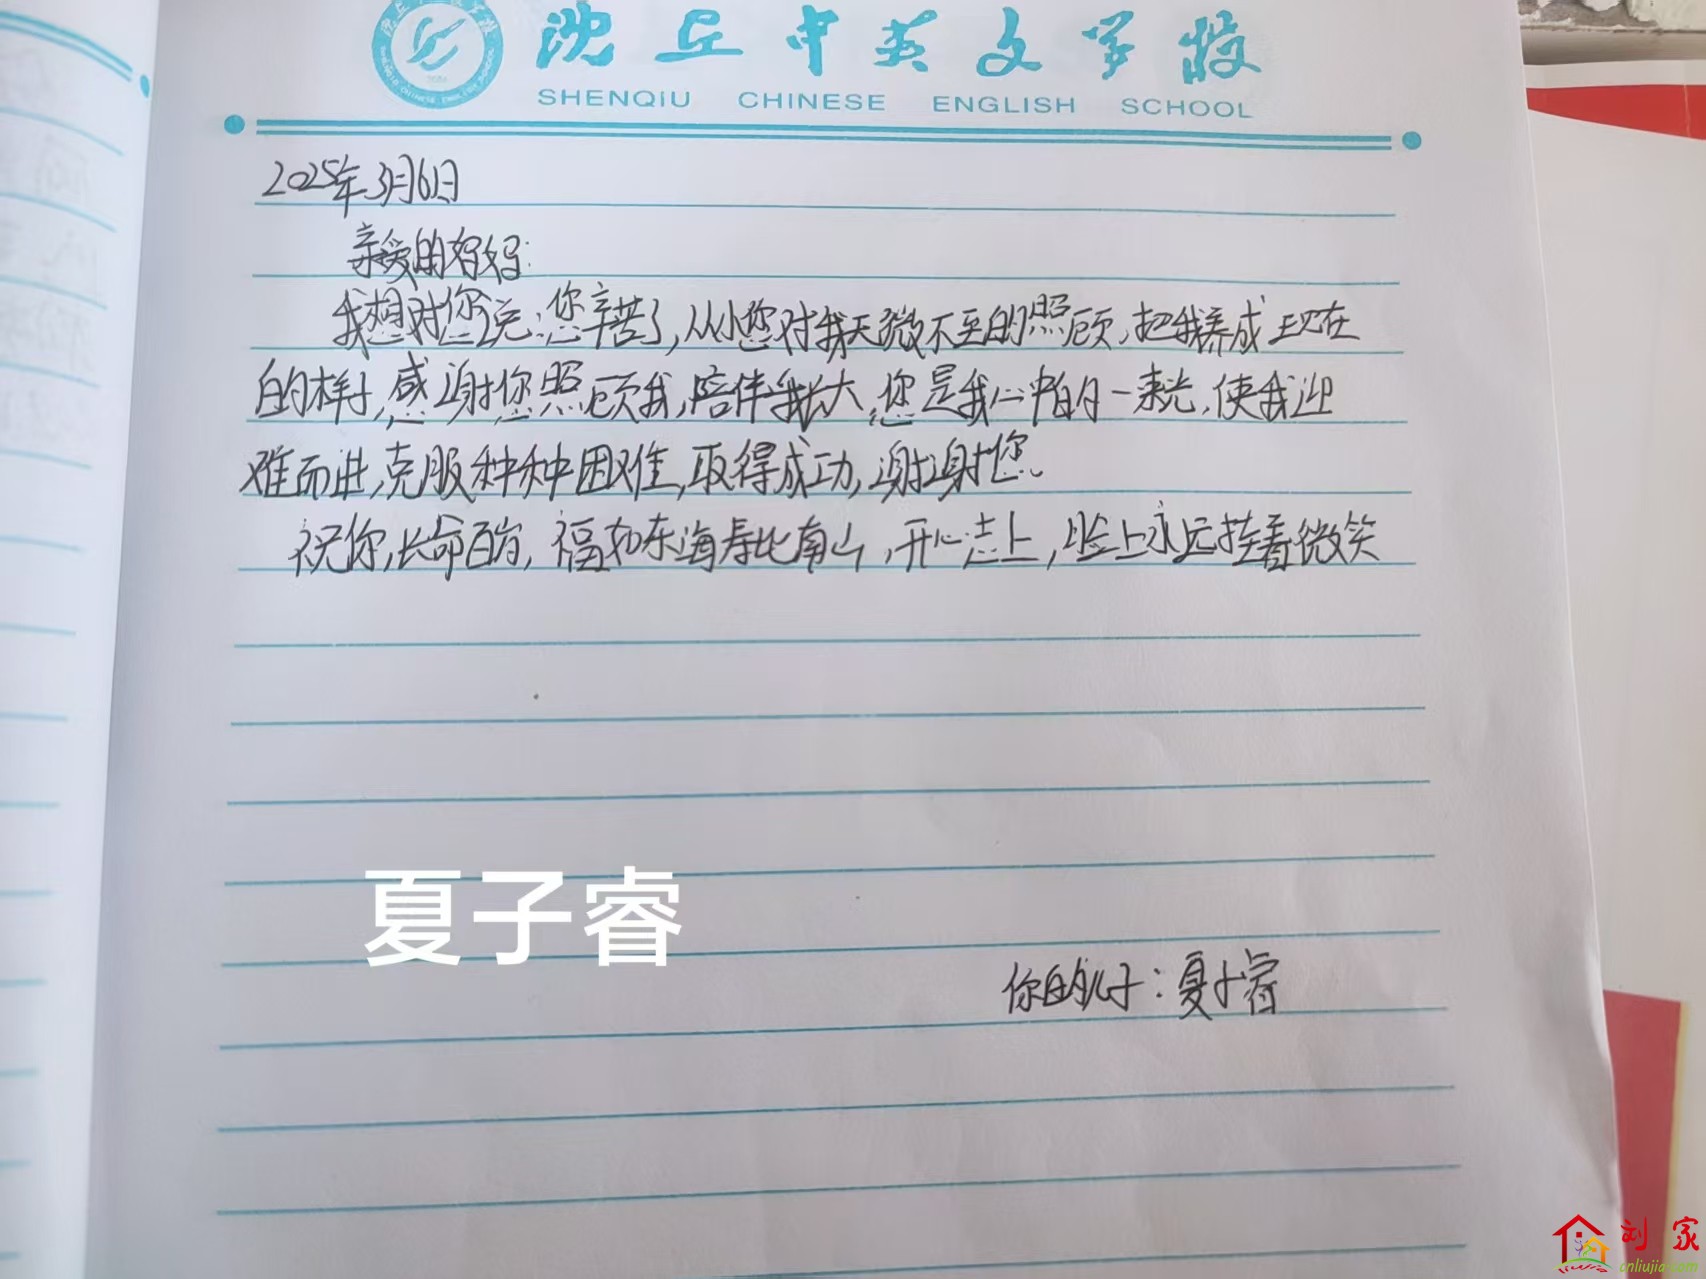 沈丘中英文学校
SHENQIU CHINESE ENGLISH SCHOOL
2025年3月6日
亲爱的妈妈:
我想对您说:您辛苦了,从小您对我无微不至的照顾,把我养成现在
的样子,感谢您照顾我,陪伴我长大,您是我心中的一束光,使我迎
难而进,克服种种困难,取得成功,谢谢您。
祝你,长命百岁,福如东海寿比南山,开心志上,脸上永远挂着微笑
夏子睿
你的儿子:夏子睿
刘家
cnliujia.com